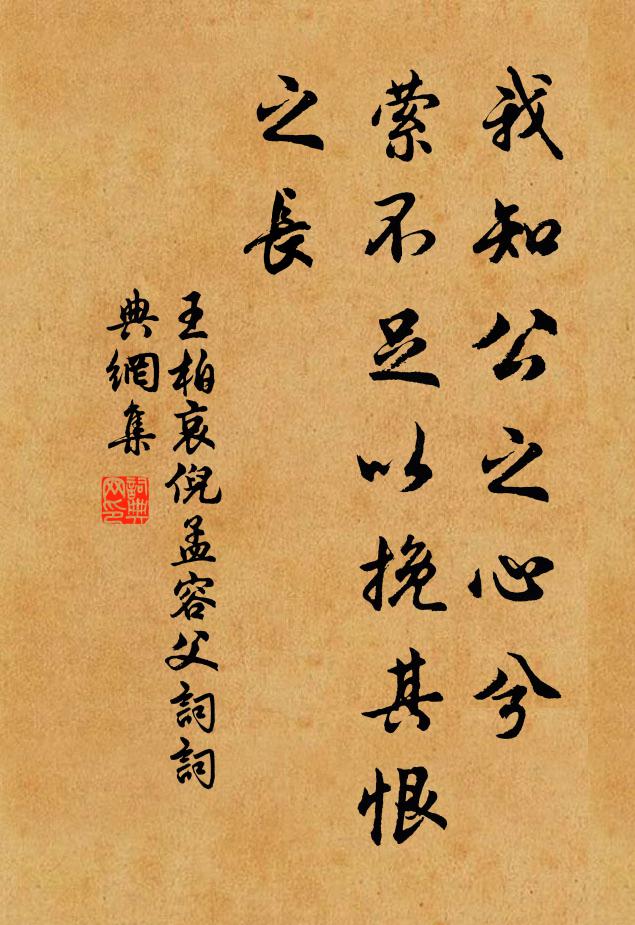 我知公之心兮
萦不足以挽其恨
之長
王柏哀倪孟容父詞詞
典網集
詞典
网印